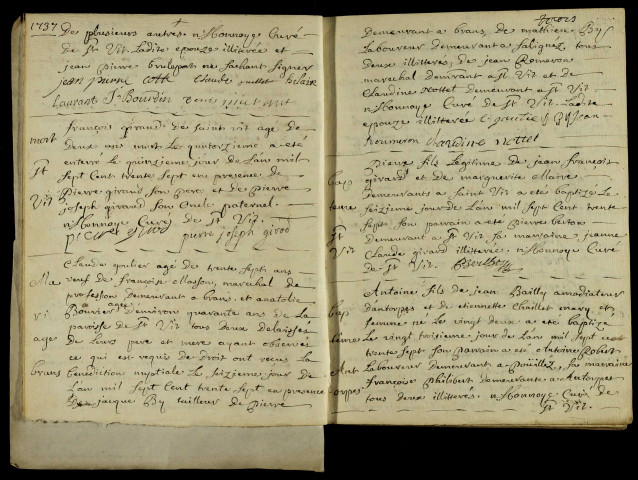 1737
De plusieurs autres. n Monnoye Curé
de St Vit. Ladite epouze illiterée et
jean pierre ne sachant signer
jean pierre Claude
laurant St Bourdin
mort
St
Vit
françois giraud de saint vit agé de
deux ans mort Le quatorzieme a eté
enterré Le quinzieme jour de Lan mil
sept Cent trente sept en presence de
Pierre giraud son pere et de pierre
joseph giraud son oncle paternel.
n Monnoye Curé de St Vit.
pierre joseph girod
Ma
ri
age
brans
Claude agé de trente sept ans
veuf de françoise Masson, marechal de
profession demeurant a brans, et anatolie
Bouvier agée d'environ quarante ans de La
paroisse de St Vit tous deux delaissés
de Leurs pere et mere ayant observés
ce qui est requis de droit ont reçus La
benediction nuptiale Le seizieme jour de
Lan mil sept Cent trente sept en presence
de jacque By tailleur de pierre
demeurant a brans, de mathieu By
Laboureur demeurant a saligney tous
deux illiterés, de jean Romeron
marechal demeurant a St Vit et de
Claudine Nottet demeurant a St Vit
n Monnoye Curé de St Vit. Ladite
epouze illiterée C By jean
roumeron claudine nottet
bap
teme
St
Vit
Pierre fils Legitime de jean françois
girard et de marguerite Maire
demeurants a saint Vit a eté baptizé Le
seizieme jour de Lan mil sept Cent trente
sept son parrain a eté pierre berton
demeurant a St Vit sa marraine jeanne
Claude girard illiterée. n Monnoye Curé
de St Vit.
bap
teme
Ant
orpes
Antoine fils de jean Bailly amodiateur
dantorpes et de etiennette Chaillet mary et
femme né Le vingt deux a eté baptizé
Le vingt troizieme jour de Lan mil sept cent
trente sept son parrain a eté Antoine Robert
Laboureur demeurant a pouilley, sa marraine
françoise philibert demeurante a Antorpes
tous deux illiterés. n Monnoye Curé de
St Vit.